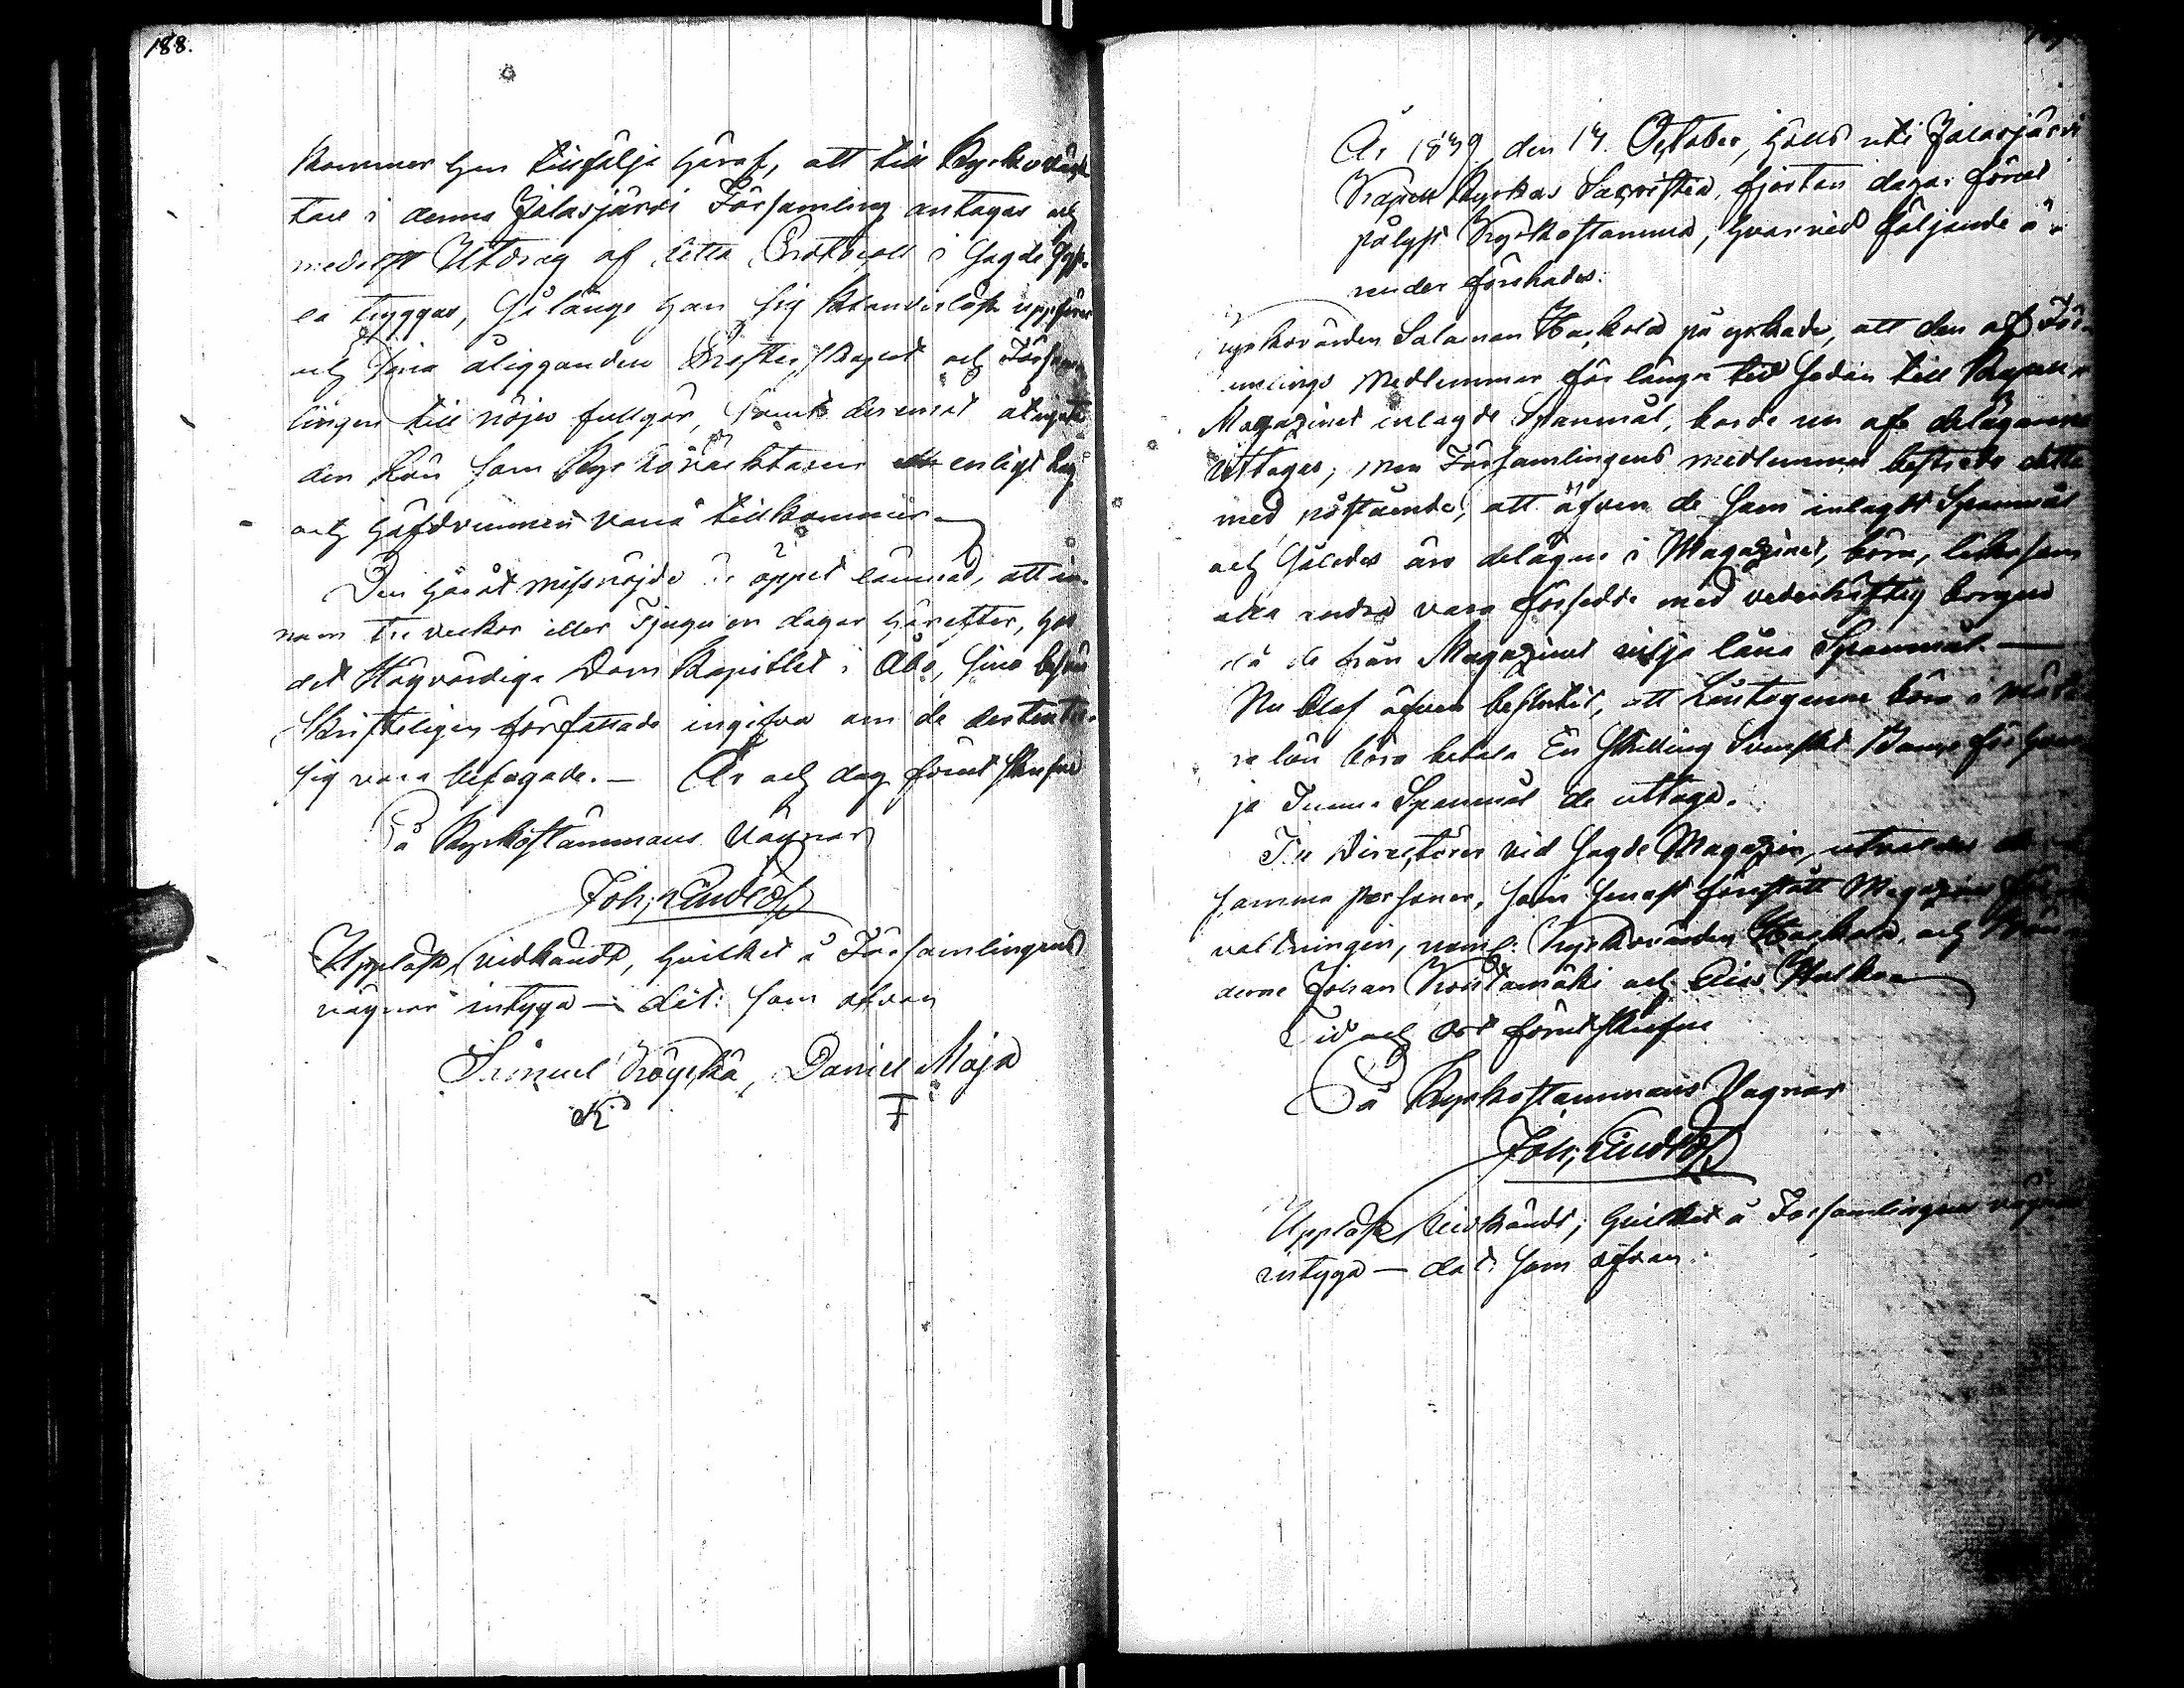 188.
kommer han tillfölje häraf, att till Kyrkowäck-
tare i denna Jalasjärvi Församling antagas och
medelst Utdrag af detta Protocoll i sagde
tryggas, så länge han sig klanderlöst uppförer
och sina åligganden Presterskapet och Försam-
lingen till nöjes fullgör, samt deremot åtnjuta
den Lön som Kyrkoväcktaren enligt Lag
och häfdvunnen vana tillkommer.—
Den häråt missnöjde är öppet lämnad, att in-
nom tre veckor eller Tjuguen dagar härefter, hos
det Högvördige Dom Kapitlet i Åbo, sina besvär
Skrifteligen författade ingifva om de dertill
sig vara befogade.— År och dag förut skrefne
På Kyrkostämmans Vägnar
Joh: Lindlöf
Uppläst vidkändt, hvilket å Församlingens
vägnar intyga — dat: som ofvan
Samuel Köykkä, Daniel Maja
År 1839 den 14 October, hölls uti Jalasjärvi
Kapell Kyrkas Sacristia, fjorton dagar förut
pålyst Kyrkostämma, hvarvid följande ä-
render förehades:
Kyrkovärden Salamon Hackola påyrkade, att den af För-
samlings Medlemmar för längre tid sedan till Kapell
Magazinet inlagde Spanmål, borde nu af delägarne
uttages; men Församlingens medlemmar bestredo detta
med påstående, att äfven de som inlagdt Spanmål
och således äro delägare i Magazinet, böra, likasom
alla andra vara försedde med vederhäftig borgen
då de från Magazinet vilja låna Spanmål.—
Nu blef äfven beslutit, att Låntagarne böra i
lön böra betala En Skilling Svenskt Banco för hvar-
je Tunna Spanmål de uttaga.
Till Directörer vid sagde Magazin, utvaldes de
samma personer, som senast förestått Magazins för-
valtningen, neml: Kyrkovärden Hackola, och
derne Johan Koistamäki och Elias Hulkko
Tid och Ort förutskrefne
På Kyrkostämmans Vägnar
Joh: Lindlöf
Uppläst vidkändt, hvilket å Församlingens vägnar
intyga — dat: som ofvan.